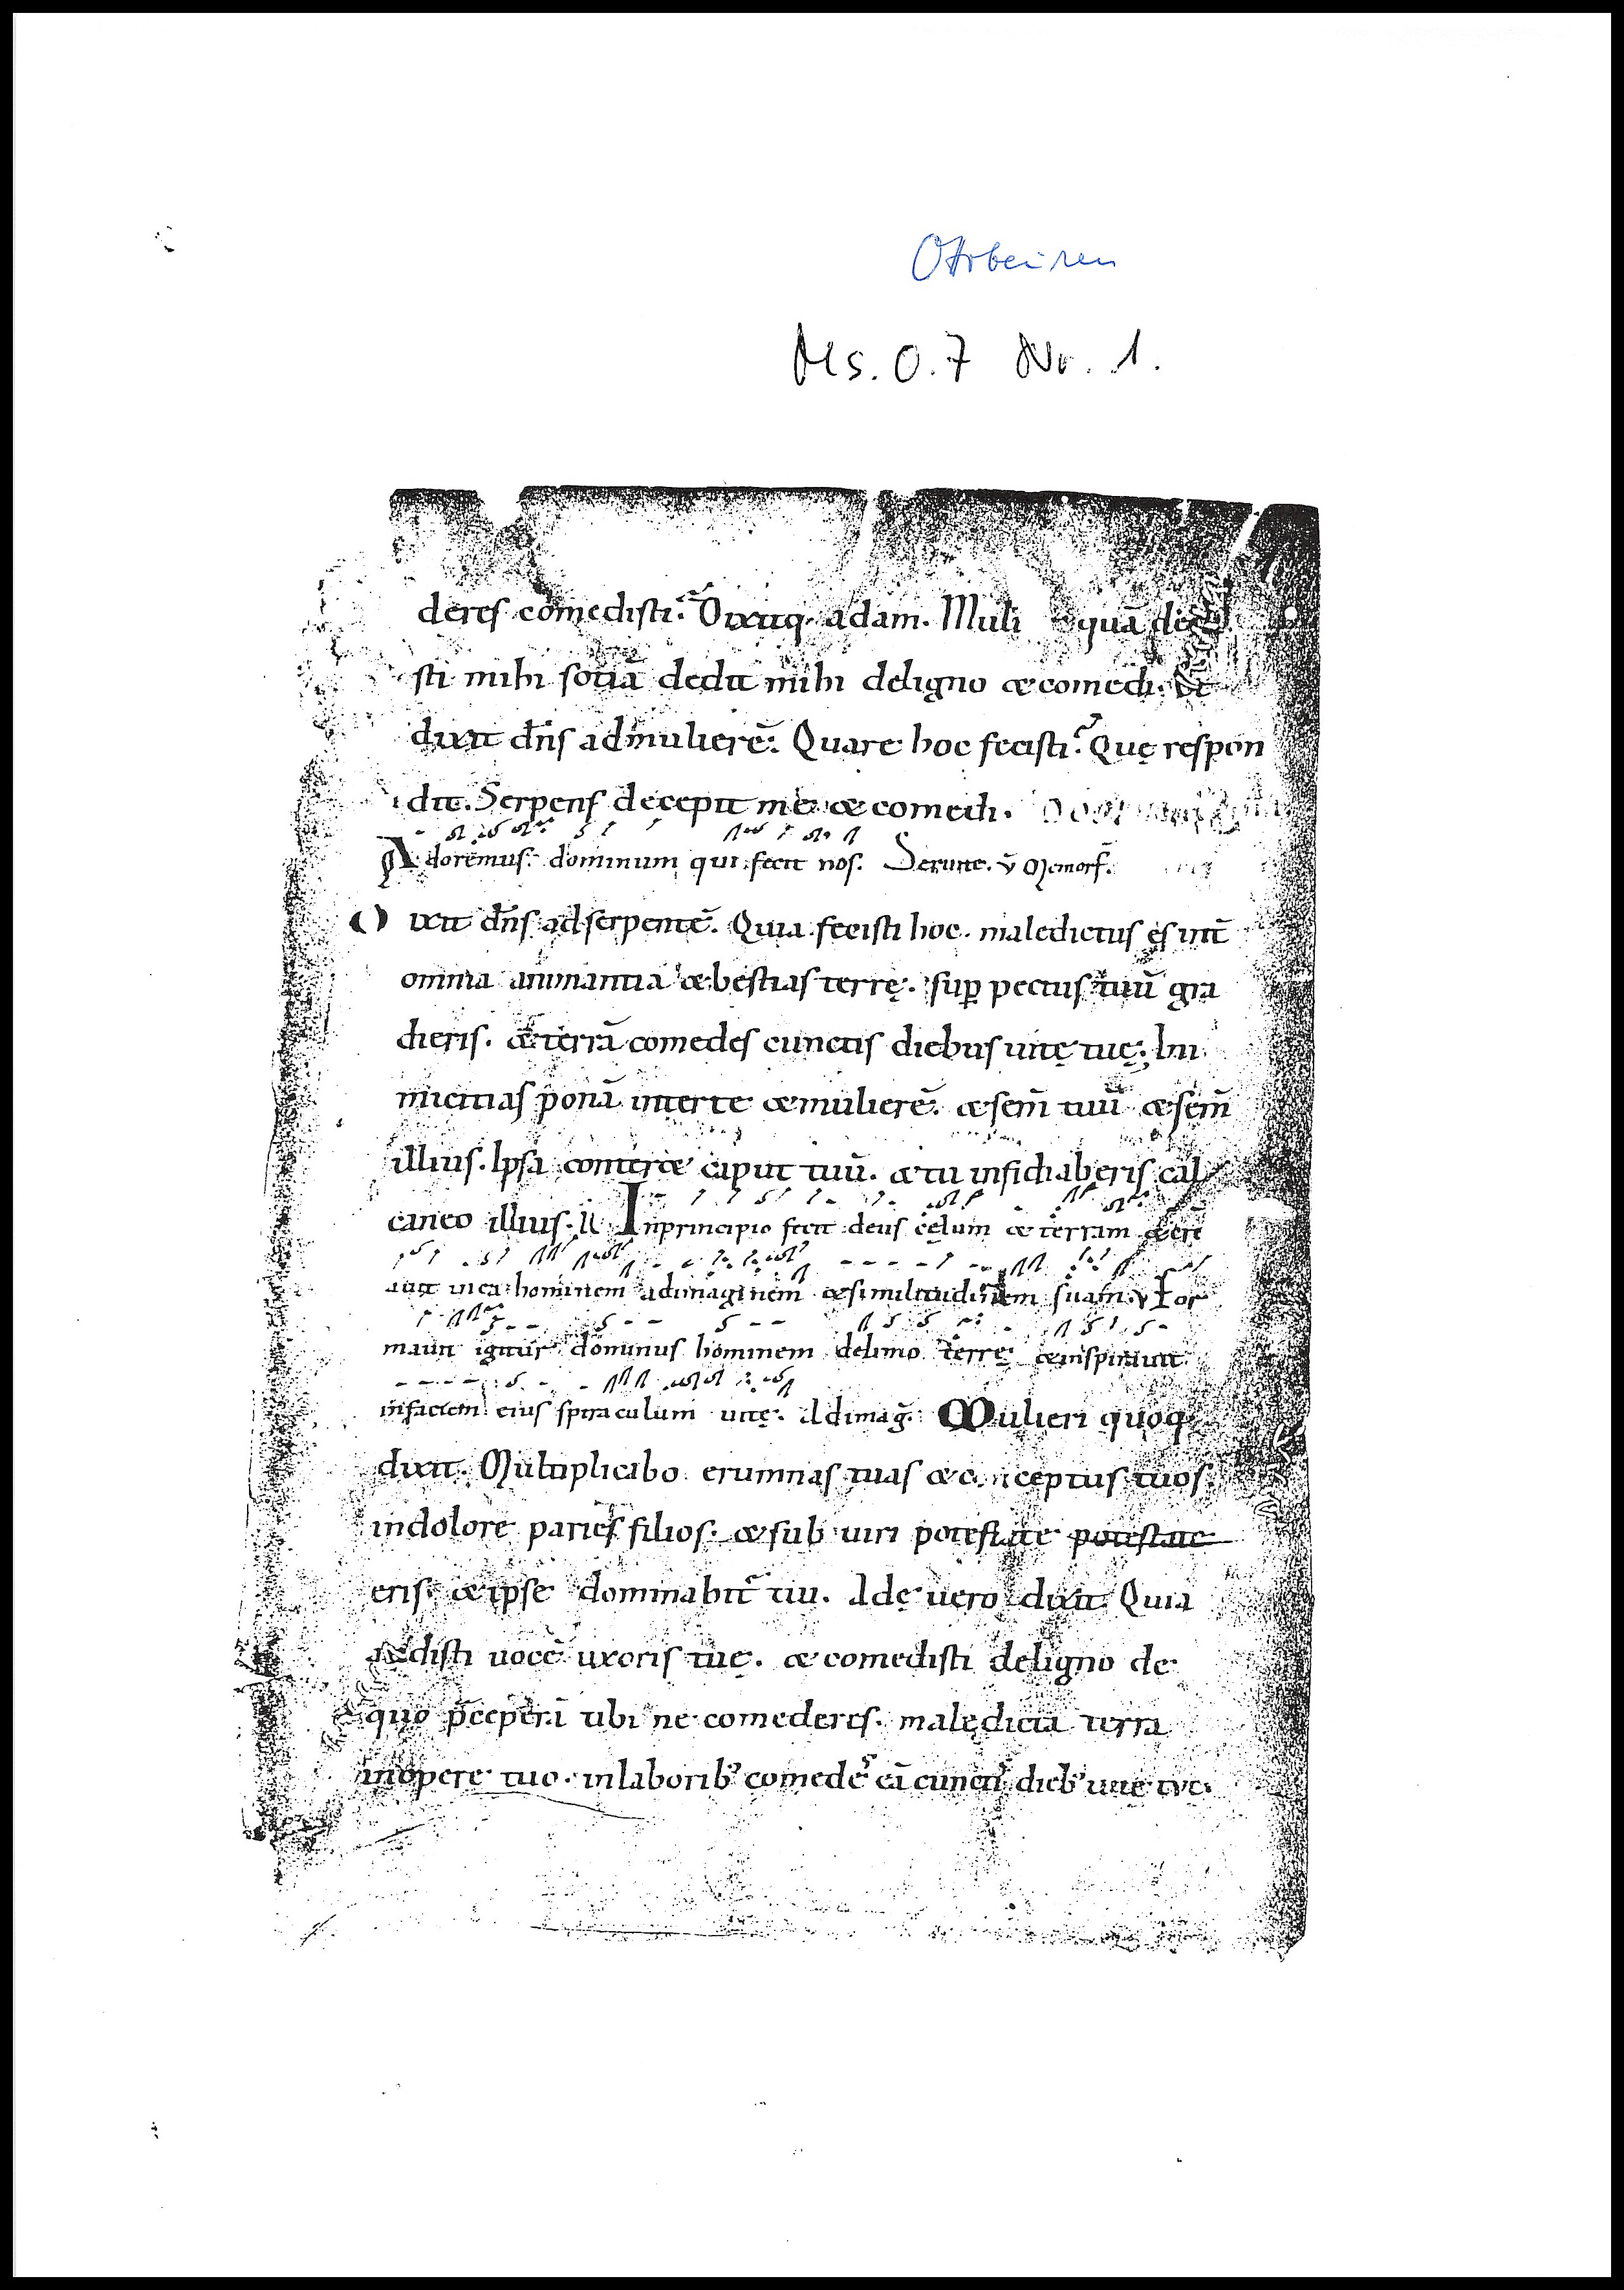 Ottobeuren
Ms. O. 7 Nr. 1.
deres comedisti. Dixitq. adam. Muli quā de
sti mihi sociā dedit mihi deligno & comedi. Et
dixit dn̄s admulierē. Quare hoc fecisti? Quę respon
dit. Serpens decepit me & comedi.
Adoremus. dominum qui fecit nos. Seruite. v̄ Memorf̄.
Dixit dn̄s ad serpentē. Quia fecisti hoc. maledictus es int̄
omnia animantia & bestias terrę. sup̲ pectus tuū gra
dieris. & terrā comedes cunctis diebus uitę tuę; Ini
micitias ponā interte & mulierē. & sem̄ tuū & sem̄
illius. Ipsa conter& caput tuū. & tu insidiaberis cal
caneo illius. R Inprincipio fecit deus cęlum & terram &cre
auit inea hominem adimaginem & similitudinem suam. v For
mauit igitur dominus hominem delimo terrę &inspirauit
infaciem eius spiraculum uitę. Adimaḡ. Mulieri quoq.
dixit. Multiplicabo erumnas tuas & conceptus tuos.
indolore paries filios. & sub uiri potestate potestate
eris. & ipse dominabit̄ tui. Adę uero dixit. Quia
audisti uocē uxoris tuę. & comedisti deligno de
quo p̄ceperā tibi ne comederes. maledicta terra
inopere tuo. inlaborib' comedes eā cunctis dieb' uitę tuę.